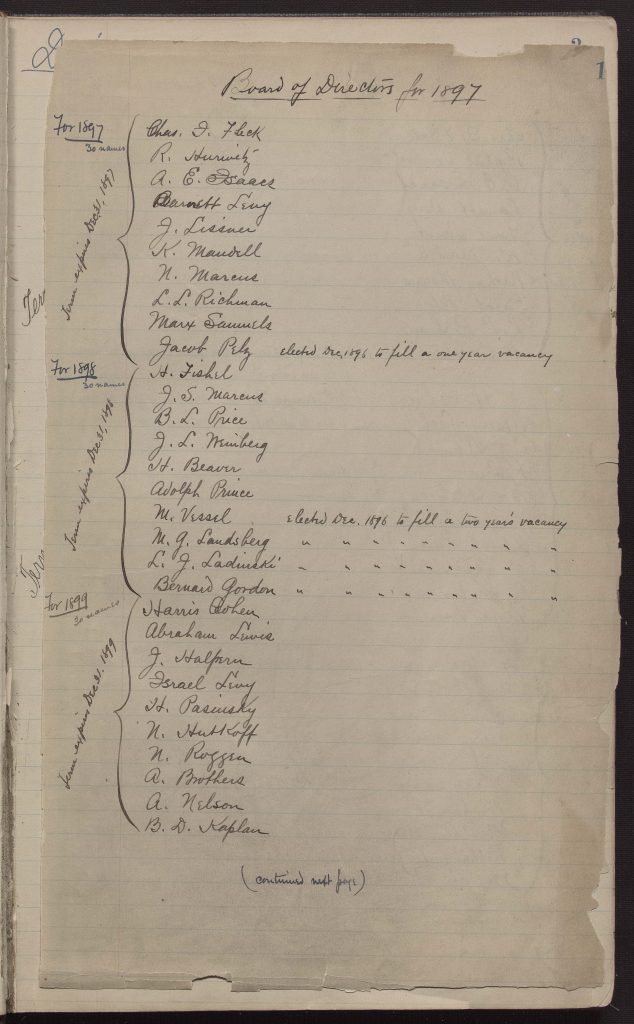 2
1
Board of Directors for 1897
For 1897
30 names
Term expires Dec 31, 1897
Chas. I. Fleck
R. Hurwitz
A. E. Isaacs
Barnett Levy
J. Lissner
K. Mandell
N. Marcus
L. L. Richman
Marx Samuels
Jacob Pelz elected Dec, 1896 to fill a one year vacancy
For 1898
30 names
Term expires Dec 31, 1898
H. Fishel
J. S. Marcus
B. L. Price
J. L. Weinberg
H. Beaver
Adolph Prince
M. Vessel elected Dec. 1896 to fill a two year's vacancy
M. G. Landsberg " " " " " " " " " "
L. J. Ladinski " " " " " " " " " "
Bernard Gordon " " " " " " " " " "
For 1899
30 names
Term expires Dec 31, 1899
Harris Cohen
Abraham Lewis
J. Halpern
Israel Levy
H. Pasinsky
N. Hutkoff
N. Roggen
A. Brothers
A. Nelson
B. D. Kaplan
(continued next page)
Ter
Ter